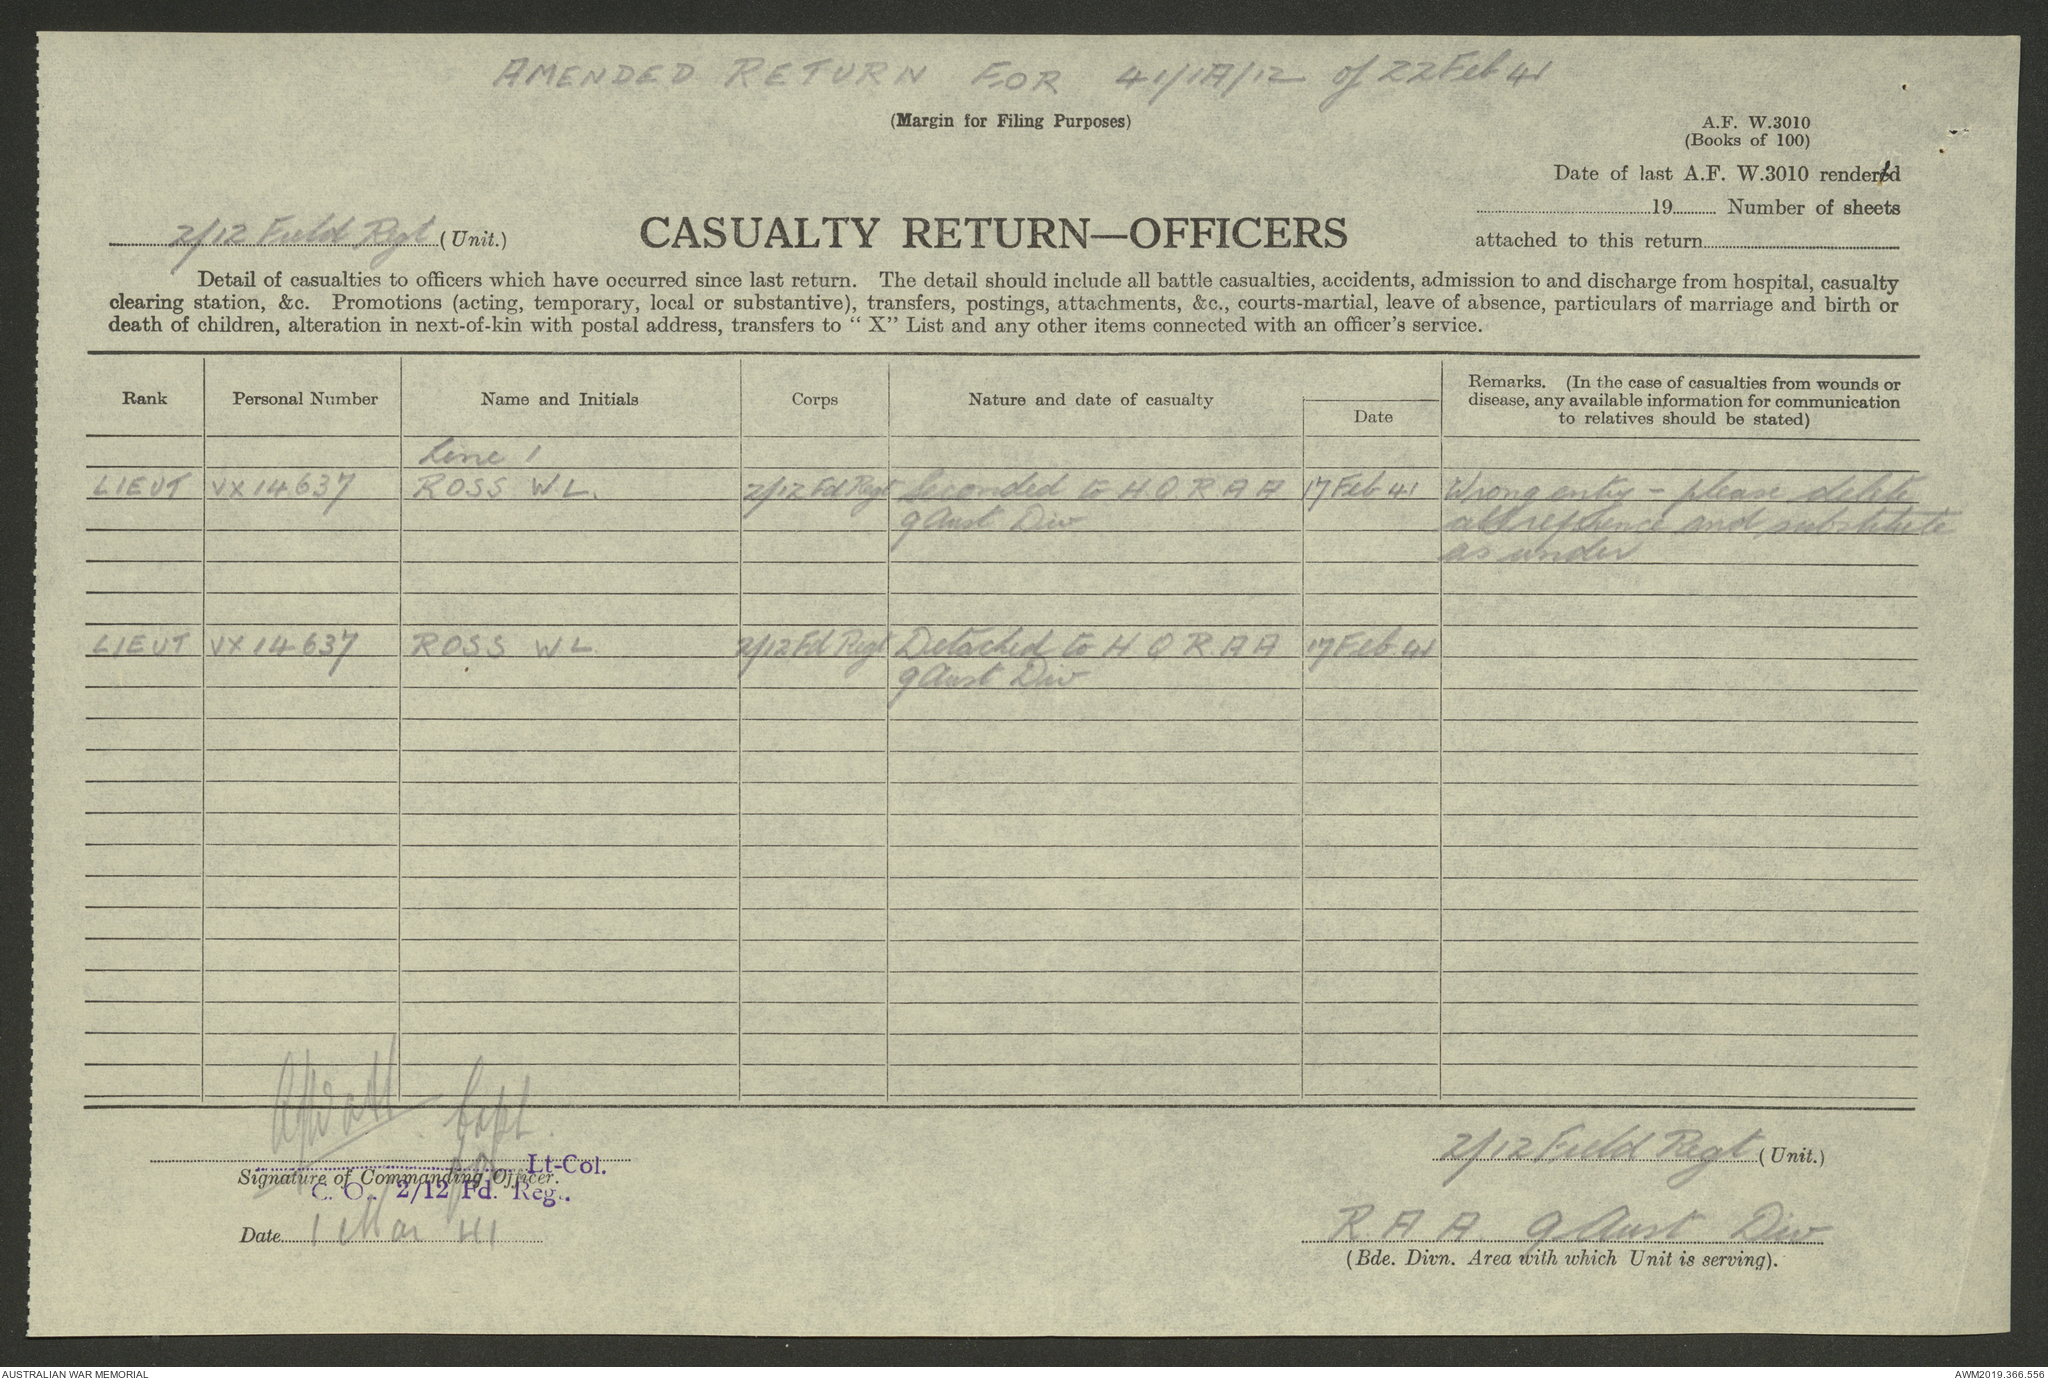 AMENDED RETURN FOR 41/1A/12 of 22 Feb 41
(Margin for Filing Purposes)
A.F. W.3010
(Books of 100)
Date of last A.F. W.3010 rendered
19 Number of sheets
attached to this return
2/12 Field Regt (Unit.)
CASUALTY RETURN—OFFICERS
Detail of casualties to officers which have occurred since last return. The detail should include all battle casualties, accidents, admission to and discharge from hospital, casualty
clearing station, &c. Promotions (acting, temporary, local or substantive), transfers, postings, attachments, &c., courts-martial, leave of absence, particulars of marriage and birth or
death of children, alteration in next-of-kin with postal address, transfers to “ X” List and any other items connected with an officer's service.
Rank Personal Number Name and Initials Corps Nature and date of casualty Date Remarks. (In the case of casualties from wounds or
disease, any available information for communication
to relatives should be stated)
Line 1
LIEUT VX14637 ROSS WL. 2/12 Fd Regt Seconded to H Q R A A 17 Feb 41 Wrong entry - please delete
9 Aust Div all refference and substitute
as under
LIEUT VX14637 ROSS WL 2/12 Fd Regt Detached to H Q R A A 17 Feb 41
9 Aust Div
Capt.
Lt-Col.
Signature of Commanding Officer.
C. O. 2/12 Fd. Reg.
Date 1 Mar 41
2/12 Field Regt (Unit.)
R A A 9 Aust Div
(Bde. Divn. Area with which Unit is serving).
AUSTRALIAN WAR MEMORIAL
AWM2019.366.556